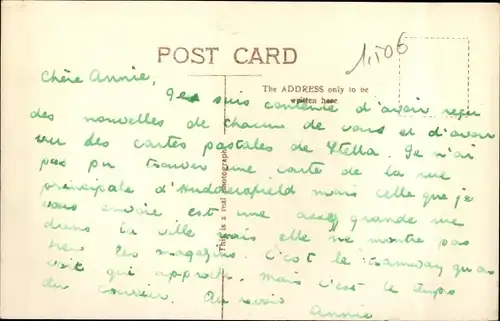 POST CARD
1,506
The ADDRESS only to be
written here
This is a real photograph
Chère Annie,
Je suis contente d'avoir reçu
des nouvelles de chacun de vous et d'avoir
vu des cartes postales de Stella. Je n'ai
pas pu trouver une carte de la rue
principale d'Huddersfield mais celle que je
vous envoie est une assez grande rue
dans la ville mais elle ne montre pas
bien les magasins. C'est le tramway qu'on
voit qui approche. Mais c'est le temps
du courrier. Au revoir
Annie